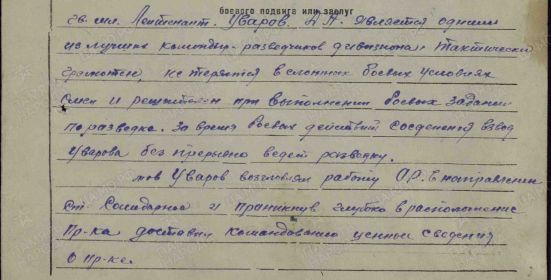 боевого подвига или заслуг
гв. мл. Лейтенант. Уваров. А.П. является одним
из лучших команды-разведчиков дивизиона. Тактически
грамотен, не теряется в сложных боевых условиях
смел и решителен при выполнении боевых задании
по разведке. За время боевых действий соеденения взвод
Уварова безпрерывно ведет разведку.
тов Уваров возглавлял работу в направлении
ст. Солидарное и проникнув глубоко в расположение
пр-ка доставил командованию ценные сведения
о пр-ке.